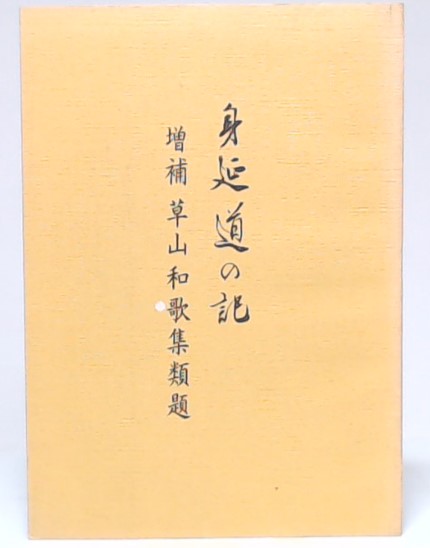 身延道の記
増補 草山和歌集類題